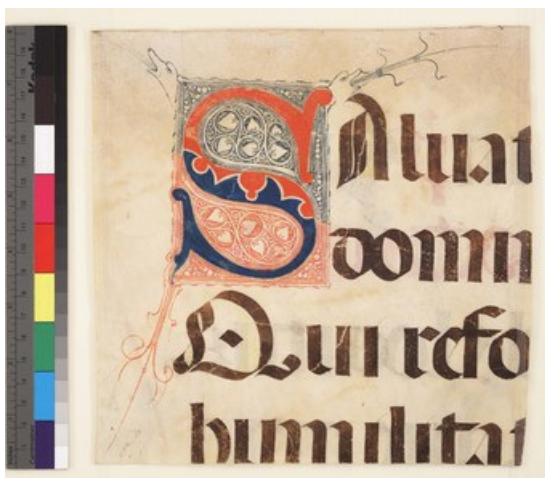 SAluat
domin
Qui refo
humilitat